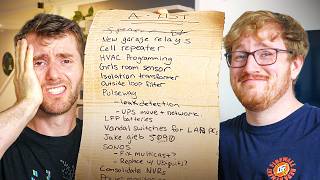 A-LIST
New garage relays
Cell repeater
HVAC Programming
Girls room sensor
Isolation transformer
outside loop filter
Pulseway
- leak detection
- UPS move + network
LFP batteries
Vandal switches for LAN PCs
Jake gieb 5090
SONOS
- Fix multicast?
- Replace w/
Consolidate NVRs